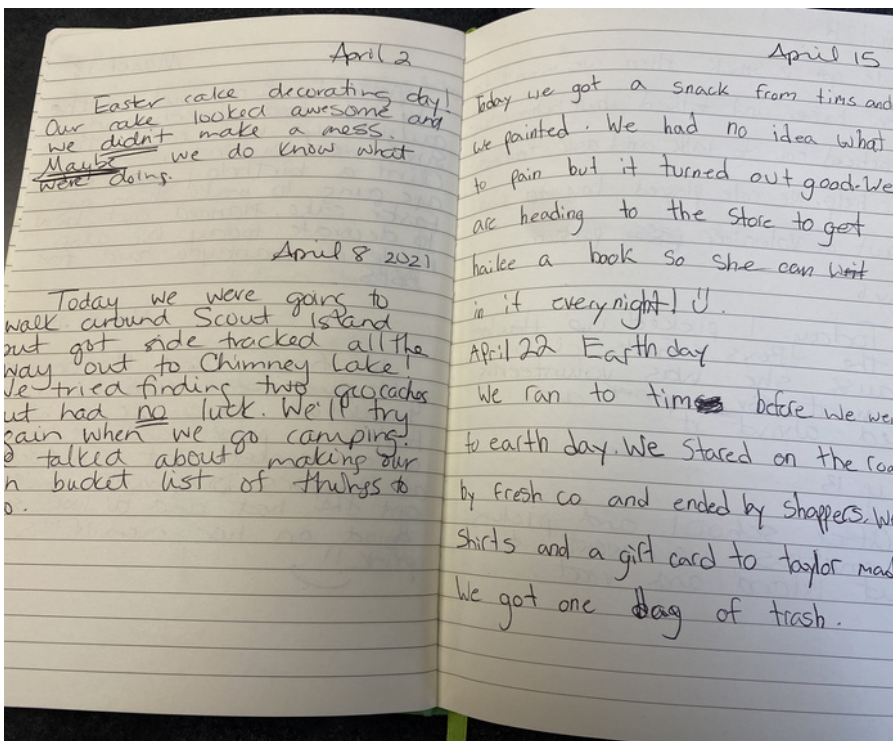 April 2
Easter cake decorating day!
Our cake looked awesome and
we didn't make a mess.
Maybe we do know what
were doing.
April 8 2021
Today we were going to
walk around Scout Island
but got side tracked all the
way out to Chimney Lake!
We tried finding two geocaches
but had no luck. We'll try
again when we go camping.
talked about making our
bucket list of things to
April 15
Today we got a snack from tims and
we painted. We had no idea what
to pain but it turned out good. We
are heading to the store to get
hailee a book so she can writ
in it every night! :)
April 22 Earth day
We ran to tims before we we
to earth day. We stared on the roa
by fresh co and ended by shoppers. We
shirts and a gift card to taylor mad
We got one bag of trash.